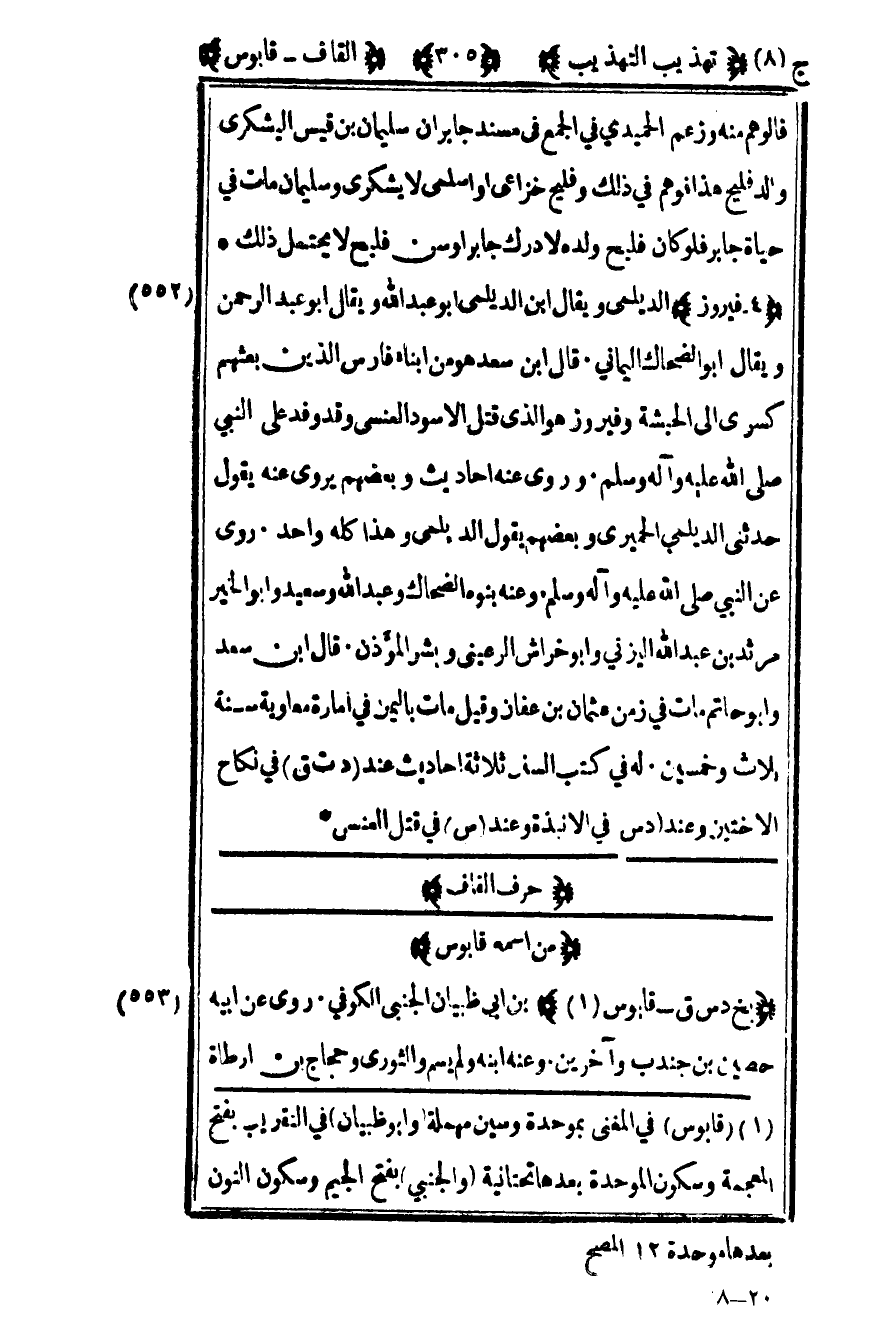 ج (٨) ﴿ تهذيب التهذيب ﴾ ﴿٣٠٥﴾ ﴿ القاف ـ قابوس ﴾
فالوهم منه وزعم الحميدي في الجمع فى مسند جابر ان سليمان بن قيس اليشكرى
والد فليح هذا فوهم في ذلك وفليح خزاعى او اسلمى لا يشكرى وسليمان مات في
حياة جابر فلو كان فليح ولده لادرك جابرا وسن فليح لا يحتمل ذلك *
﴿ ٤ ـ فيروز ﴾ الديلمى ويقال ابن الديلمى ابو عبدالله ويقال ابو عبد الرحمن (٥٥٢)
ويقال ابو الضحاك اليماني ٠ قال ابن سعد هو من ابناء فارس الذين بعثهم
كسرى الى الحبشة وفيروز هو الذى قتل الاسود العنسى وقد وفد على النبي
صلى الله عليه وآله وسلم ٠ وروى عنه احاديث وبعضهم يروى عنه يقول
حدثنى الديلمي الحميرى وبعضهم يقول الديلمى وهذا كله واحد ٠ روى
عن النبي صلى الله عليه وآله وسلم ٠ وعنه بنوه الضحاك وعبدالله وسعيد وابو الخير
مرثد بن عبدالله اليزني وابو خراش الرعينى وبشر المؤذن ٠ قال ابن سعد
وابو حاتم مات في زمن عثمان بن عفان وقيل مات باليمن في امارة معاوية سنة
ثلاث وخمسين ٠ له في كتب السنن ثلاثة احاديث عند (د ت ق) في نكاح
الاختين وعند (د س في الانبذة وعند (س) في قتل العنس *
﴿ حرف القاف ﴾
﴿ من اسمه قابوس ﴾
﴿ بخ د س ق ـ قابوس (١) ﴾ بن ابي ظبيان الجنبى الكوفي ٠ روى عن ابيه (٥٥٣)
حصين بن جندب وآخرين ٠ وعنه ابنه ولم يسم والثورى وحجاج بن ارطاة
(١) (قابوس) في المغنى بموحدة وسين مهملة (وابو ظبيان) في التقريب بفتح
المعجمة وسكون الموحدة بعدها تحتانية (والجنبي) بفتح الجيم وسكون النون
بعدها موحدة ١٢ المصحح
٢٠ـ٨